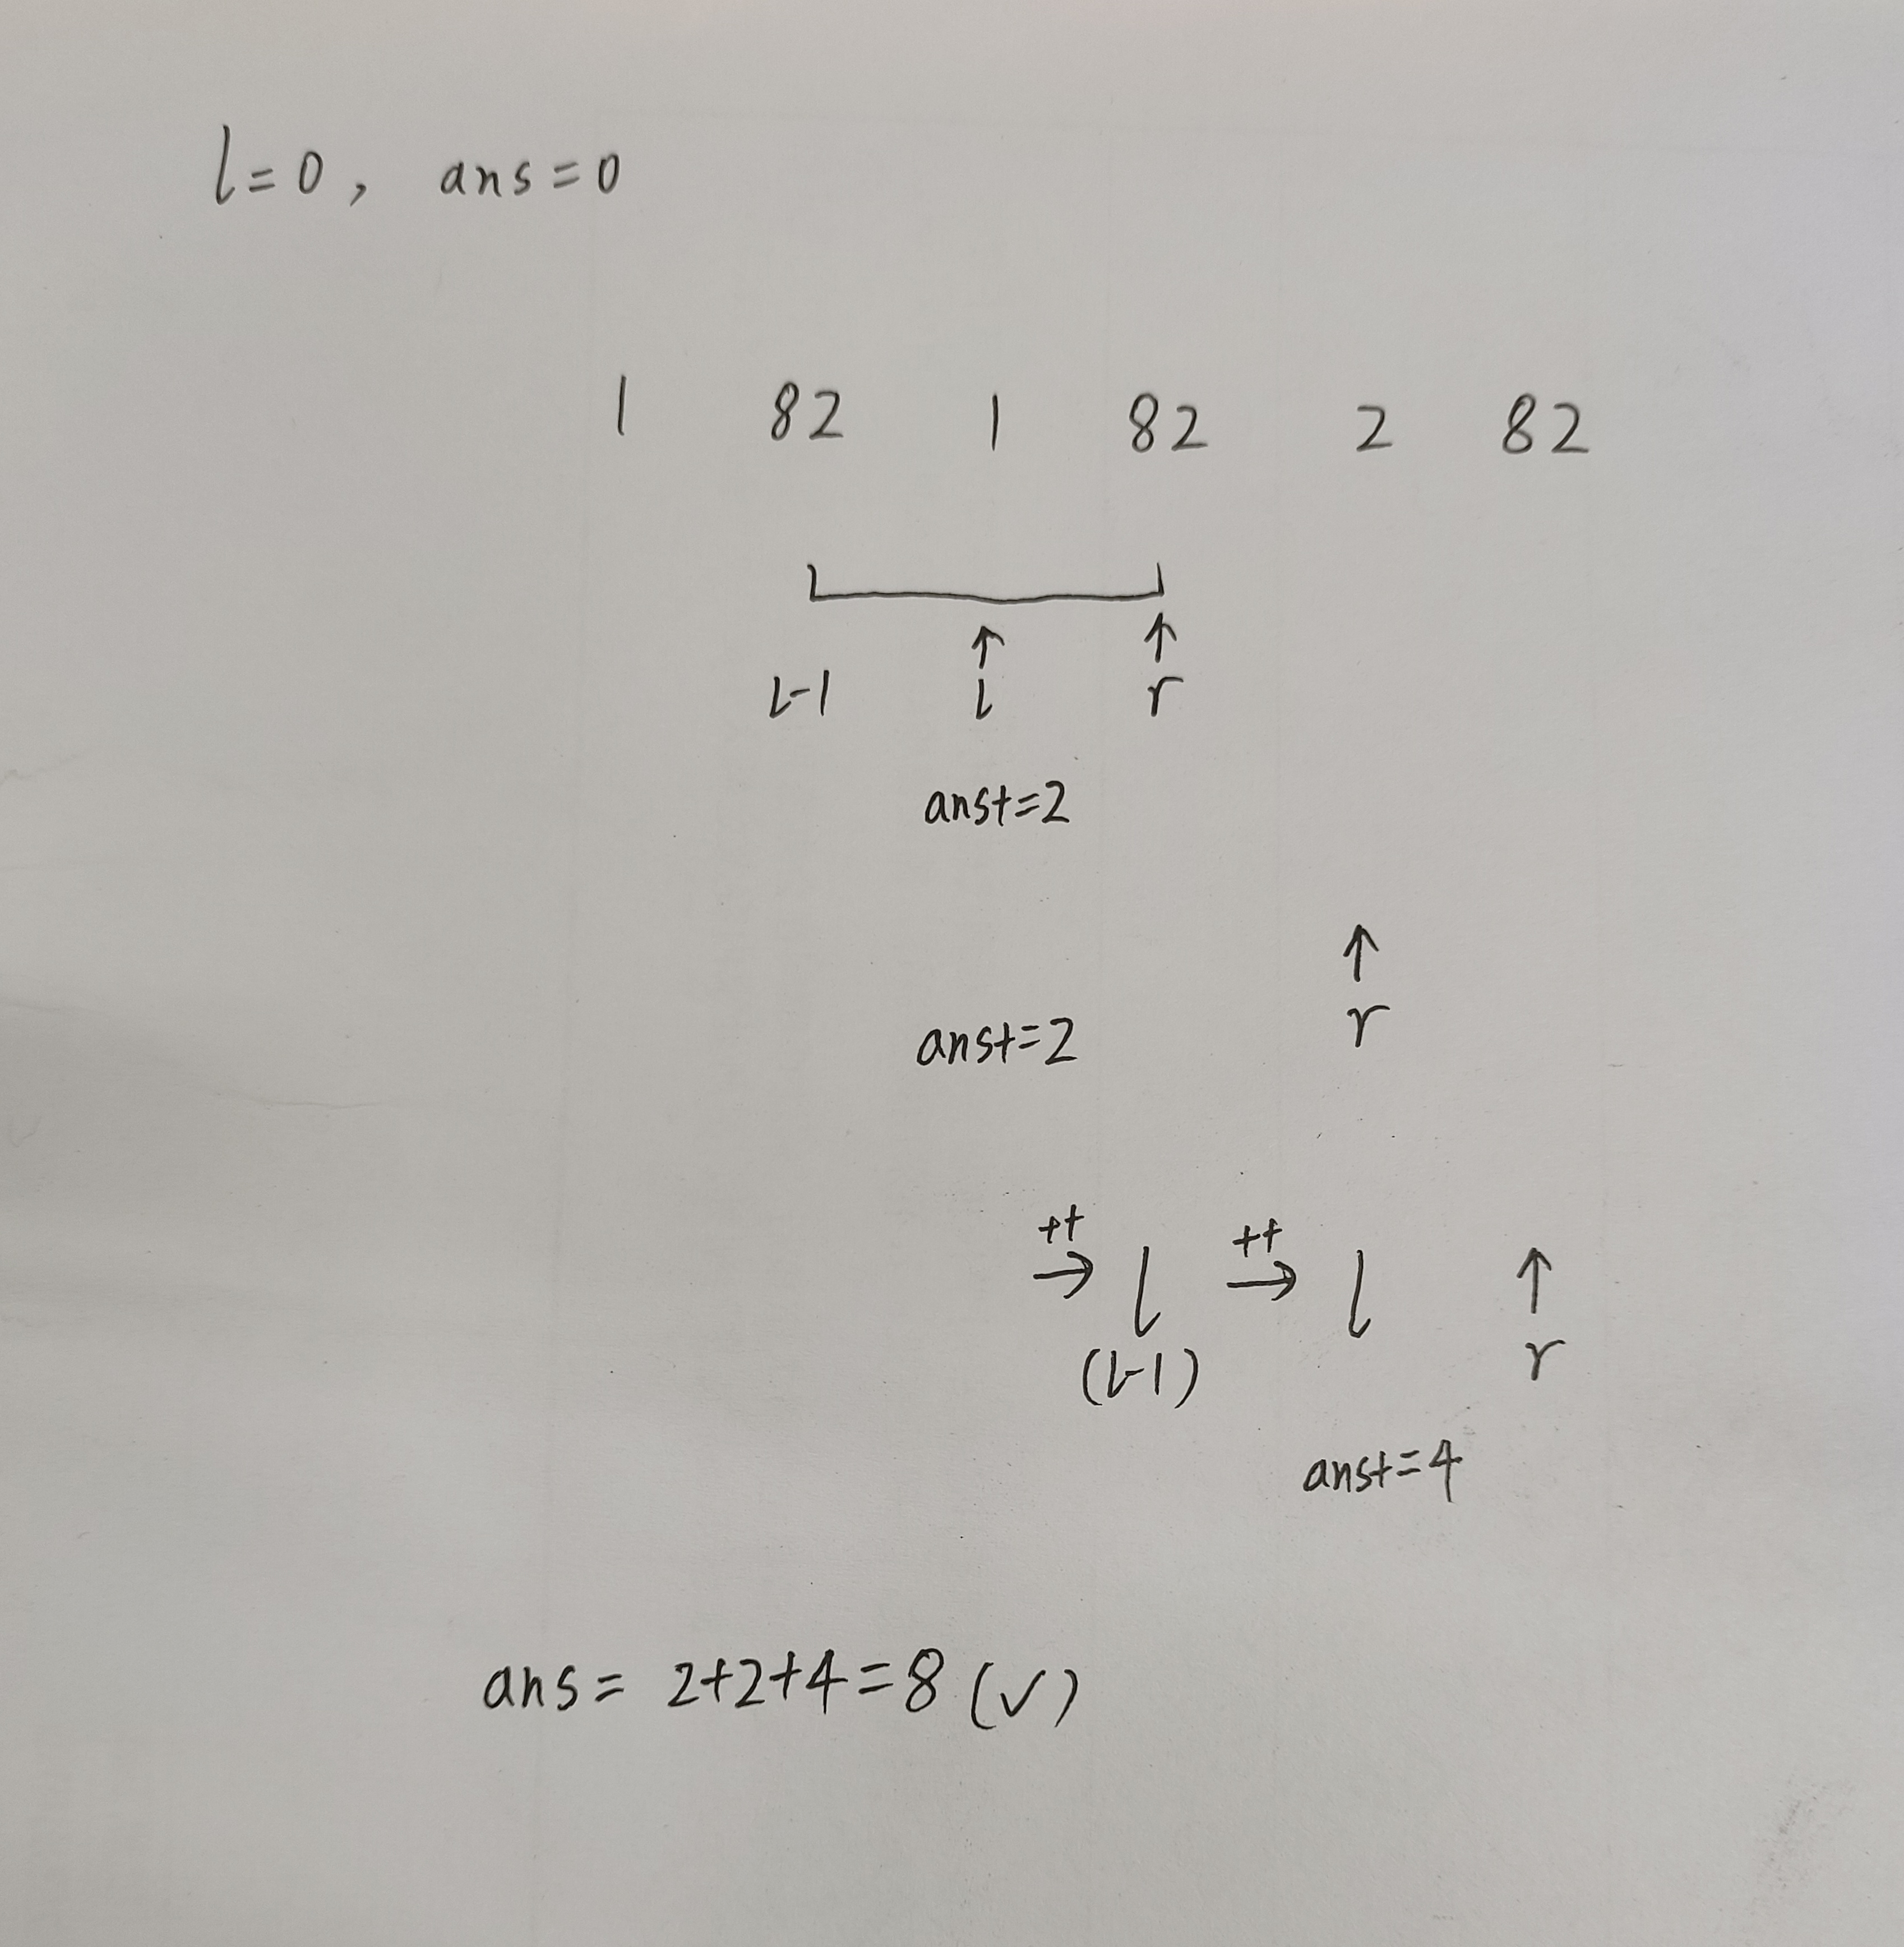 l=0, ans=0
1 82 1 82 2 82
↑ ↑
l-1 l r
ans+=2
↑
ans+=2 r
++ ++
→ l → l ↑
(l-1) r
ans+=4
ans= 2+2+4=8 (✓)